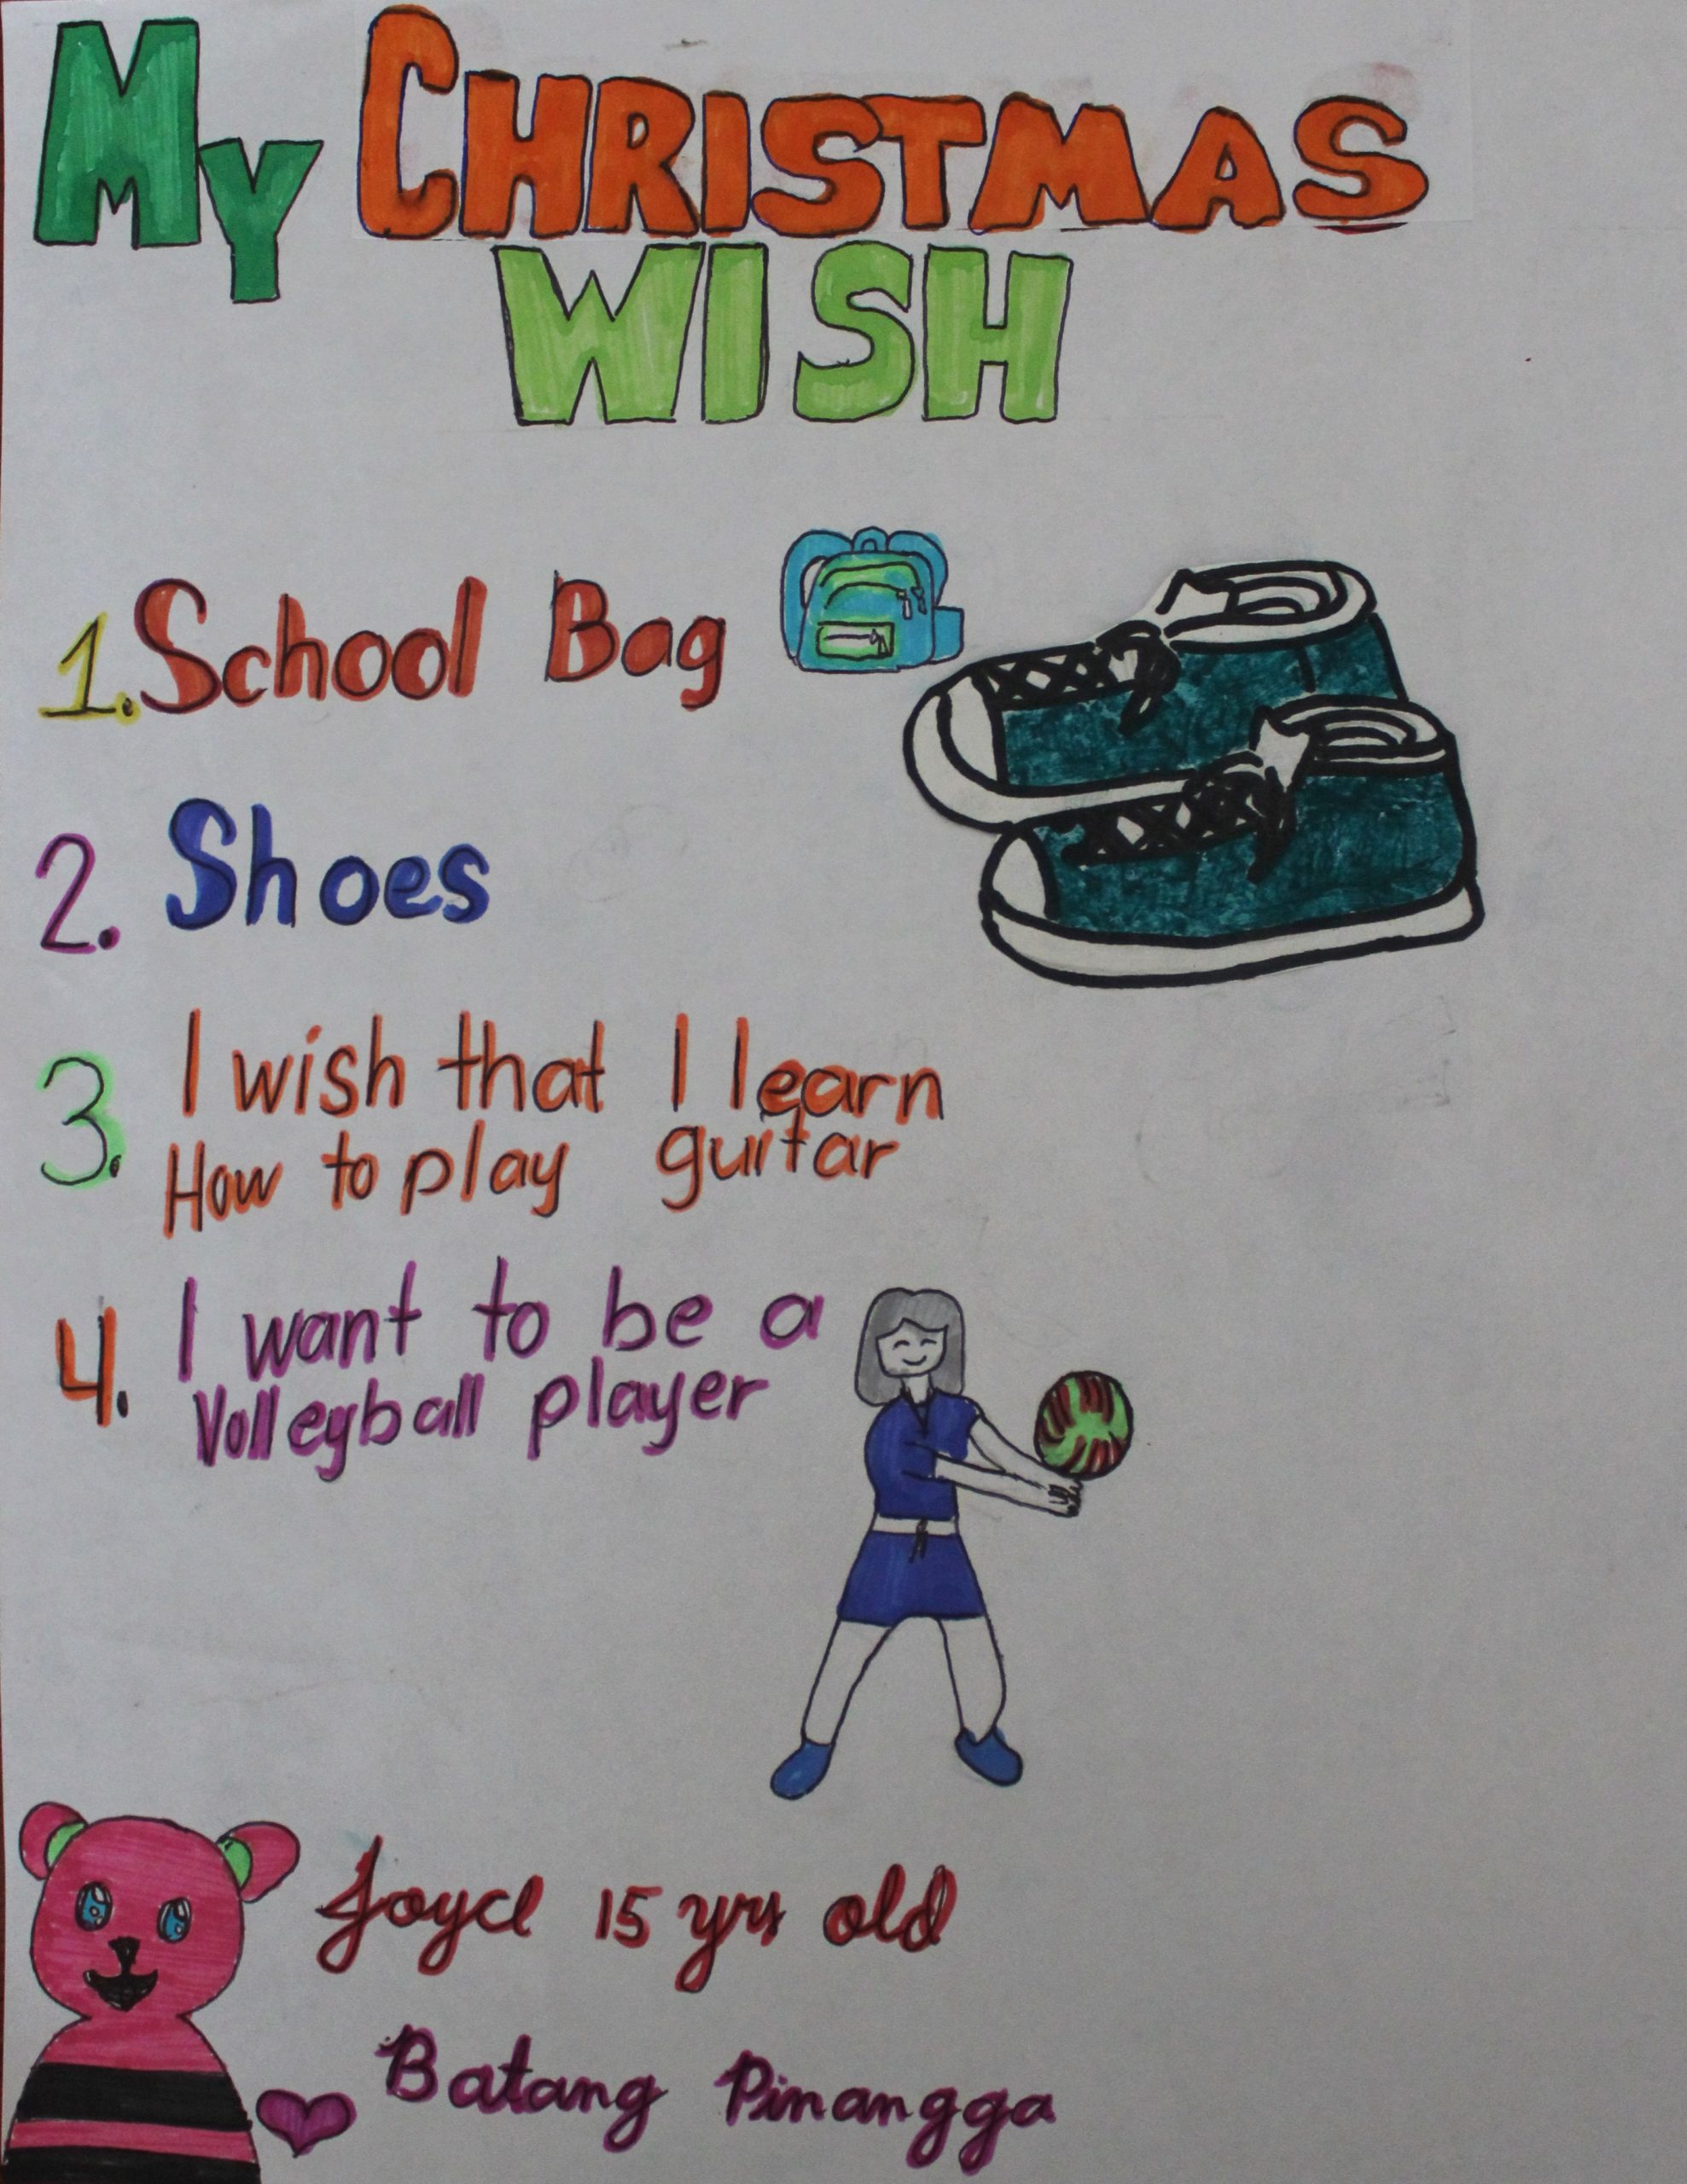 My CHRISTMAS
WISH
1. School Bag
2. Shoes
3. I wish that I learn
How to play guitar
4. I want to be a
Volleyball player
Joyce 15 yrs old
Batang Pinangga